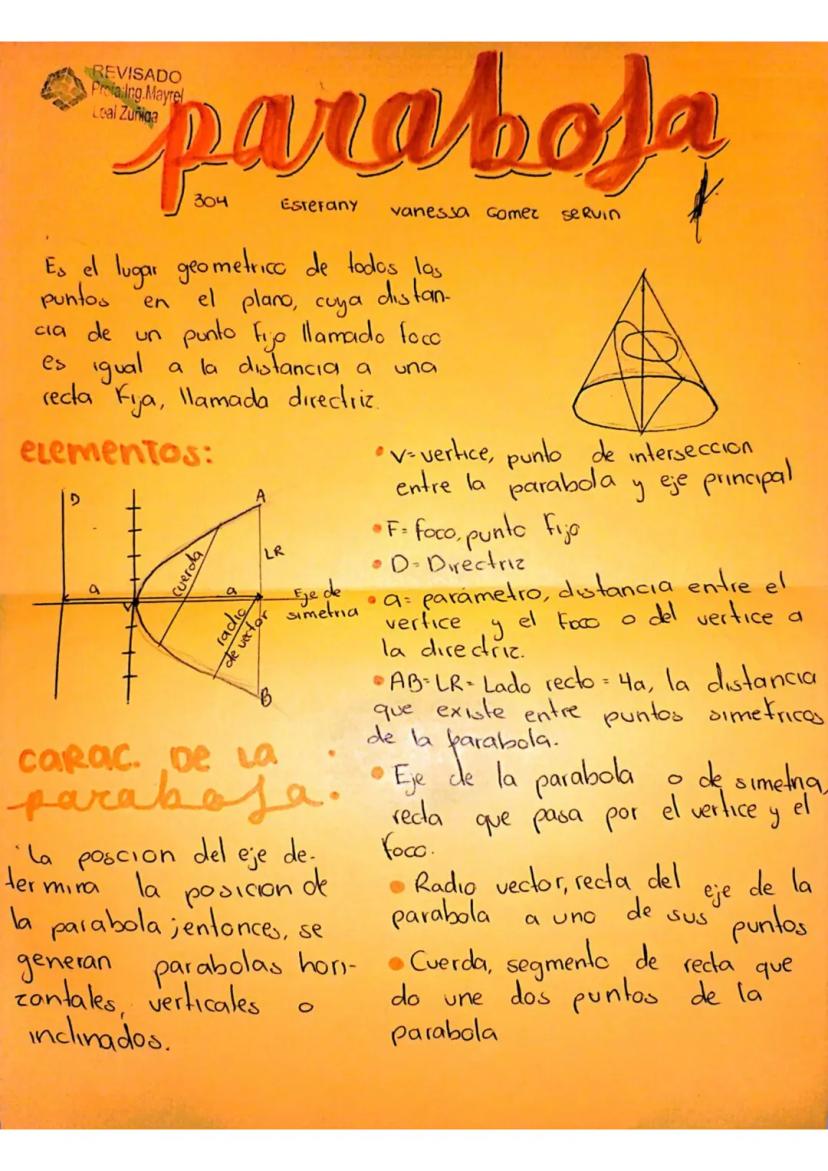 REVISADO
Profa:Ing.Mayrel
Leal Zuñiga
parabola
304 Estefany vanessa Gomez seRvin
Es el lugar geometrico de todos los
puntos en el plano, cuya distan-
cia de un punto fijo llamado foco
es igual a la distancia a una
recta fija, llamada directriz.
eLementos:
D
A
LR
cuerda
a
a
Eje de
simetria
V
radio
de vector
B
• V=vertice, punto de interseccion
entre la parabola y eje principal
• F= foco, punto fijo
• D= Directriz
• a= parámetro, distancia entre el
vertice y el foco o del vertice a
la directriz.
• AB=LR= Lado recto = 4a, la distancia
que existe entre puntos simetricos
de la parabola.
• Eje de la parabola o de simetria,
recta que pasa por el vertice y el
foco.
• Radio vector, recta del eje de la
parabola a uno de sus puntos
• Cuerda, segmento de recta que
do une dos puntos de la
parabola
caRac. De La
parabola.
• La poscion del eje de-
termina la posicion de
la parabola; entonces, se
generan parabolas hori-
zontales, verticales o
inclinados.